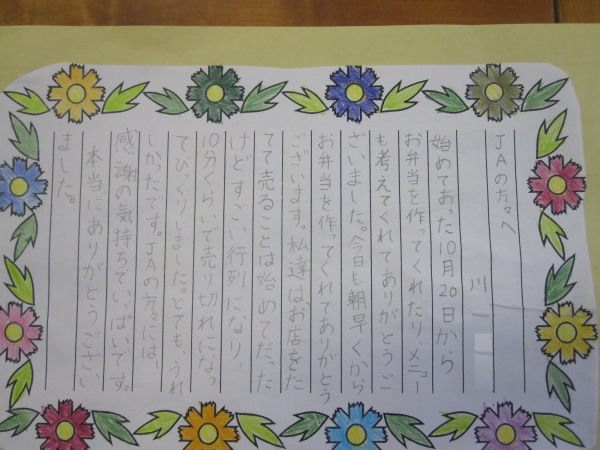 JAの方々へ
川
始めてあった10月20日から
お弁当を作ってくれたり、メニュー
も考えてくれてありがとうご
ざいました。今日も朝早くから
お弁当を作ってくれてありがとう
ございます。私達はお店をた
てて売ることは始めてだった
けどすごい行列になり、
10分くらいで売り切れになっ
てびっくりしました。とても、うれ
しかったです。JAの方々には、
感謝の気持ちでいっぱいです。
本当にありがとうござい
ました。